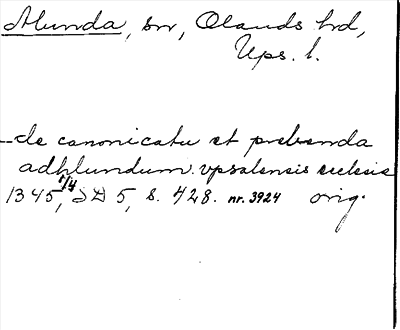 Alunda, sn, Olands hd,
Ups. l.
--de canonicatu et prebenda
adhlundum. vpsalensis ecclesie
1345, 1/4 SD 5, s. 428. nr. 3924 orig.